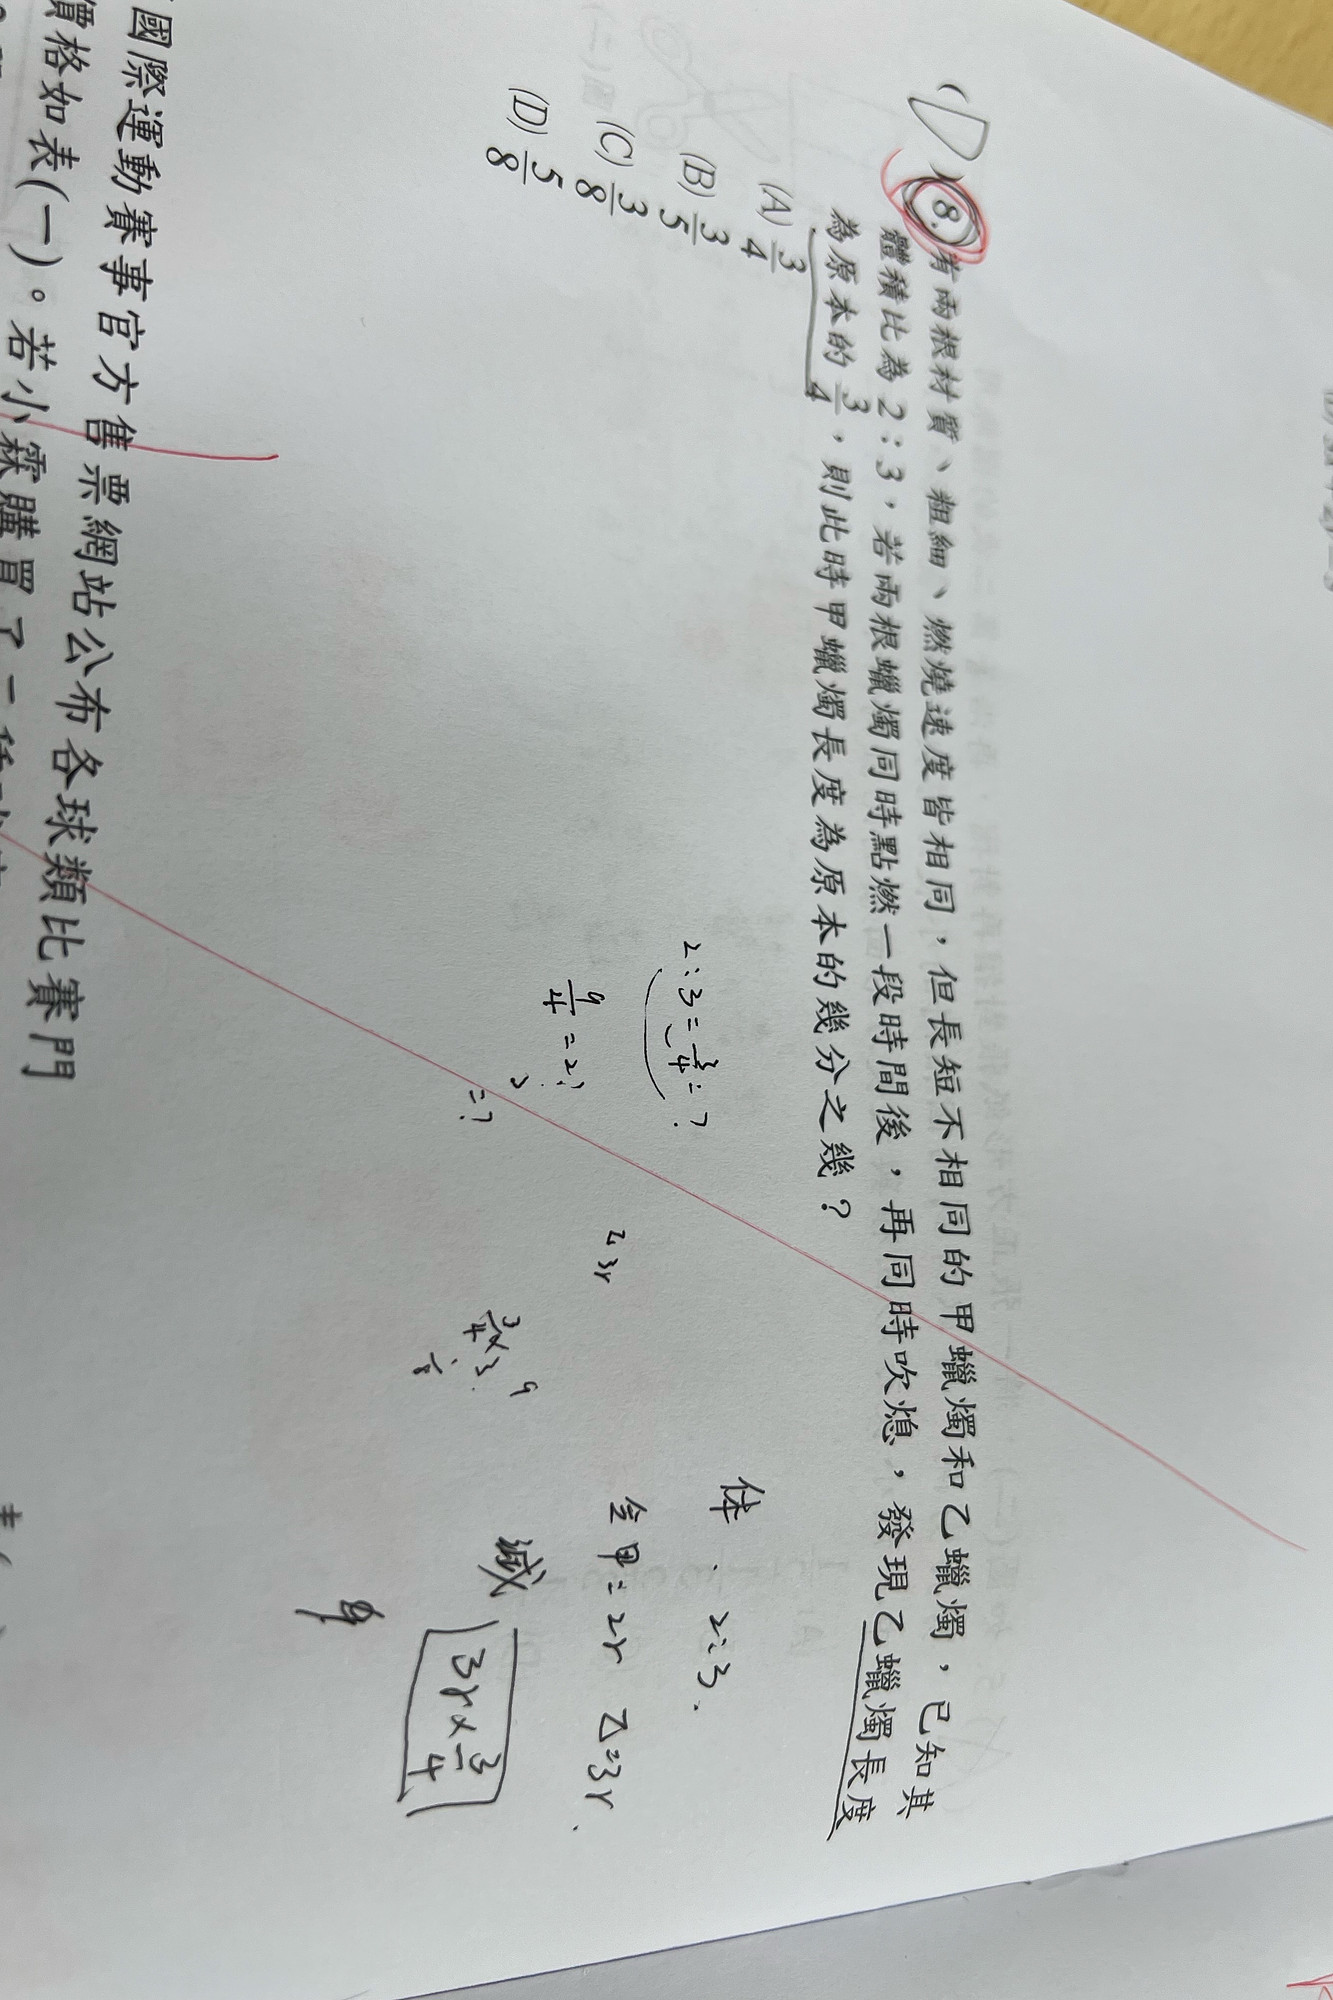 (D) 8. 有兩根材質、粗細、燃燒速度皆相同，但長短不相同的甲蠟燭和乙蠟燭，已知其
體積比為2：3，若兩根蠟燭同時點燃一段時間後，再同時吹熄，發現乙蠟燭長度
為原本的3/4，則此時甲蠟燭長度為原本的幾分之幾？
(A) 3/4
(B) 3/5
(C) 3/8
(D) 5/8
2:3=3/4:?
9/4=2?
=?
2r 3r
3/4×3
9
体 2:3.
全甲=2r 乙=3r.
減 3r×3/4
國際運動賽事官方售票網站公布各球類比賽門
價格如表(一)。若小霖購買了